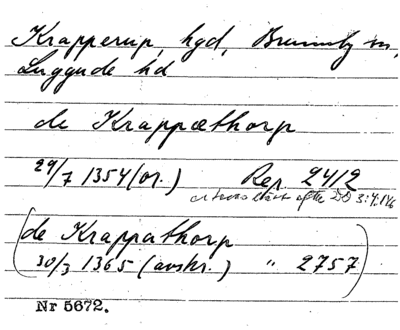 Krapperup, hgd, Brunnby sn,
Luggude hd
de Krappæthorp
29/7 1354 (or.) Rep. 2412
efter DD 3:4:116
(de Krappathorp
30/3 1365 (avskr.) " 2757)
Nr 5672.